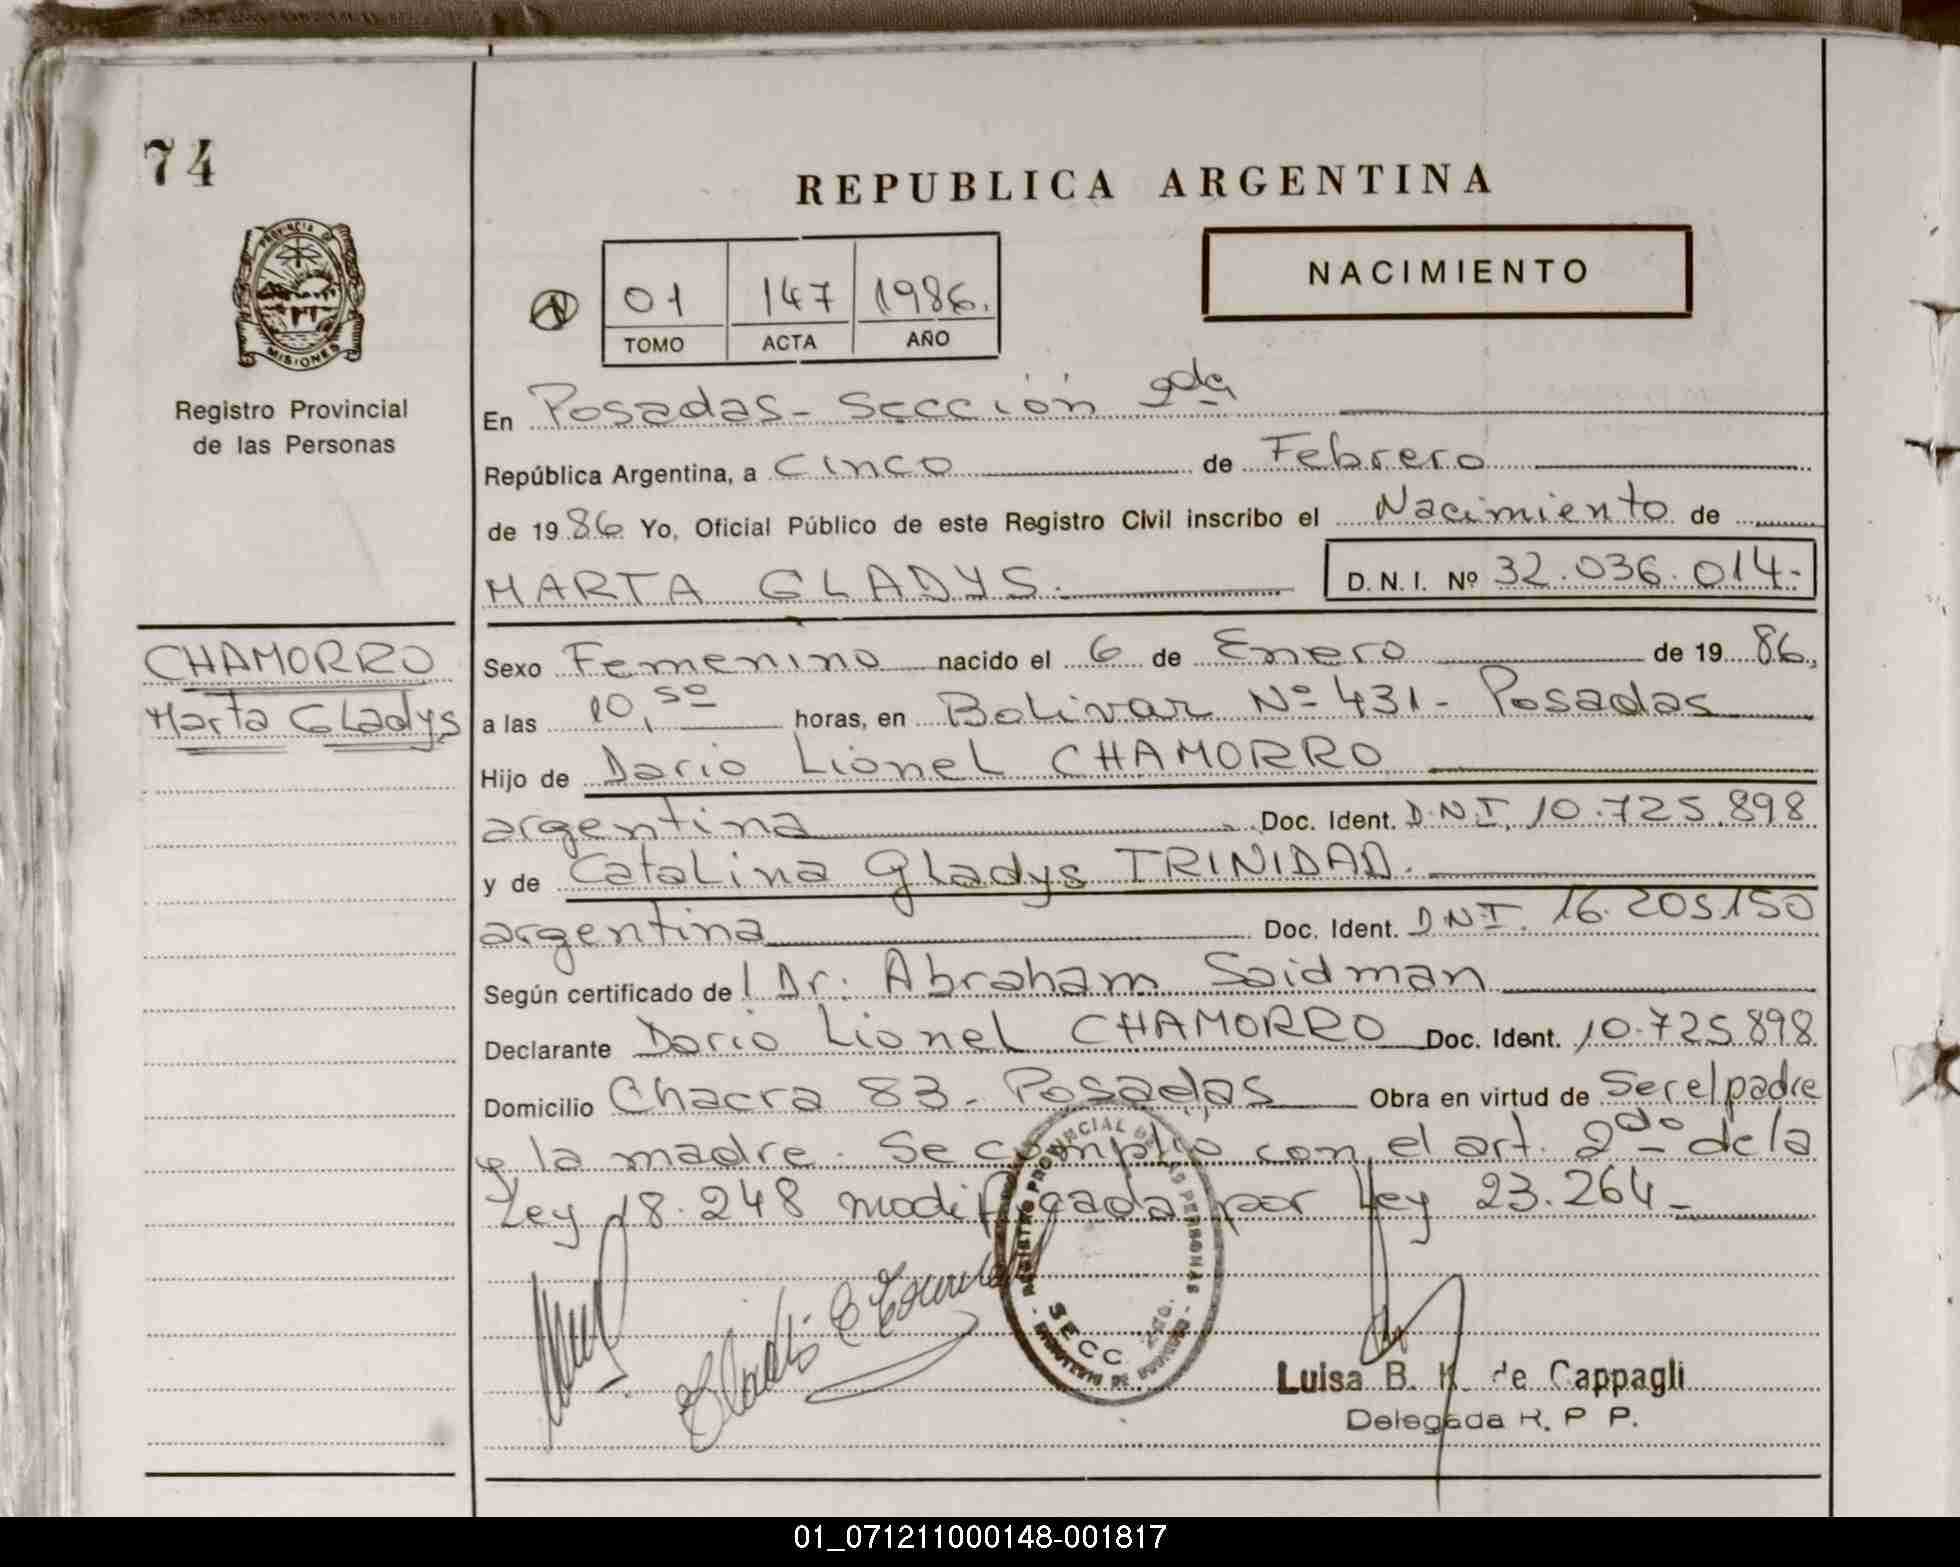 74
REPUBLICA ARGENTINA
PROVINCIA DE
MISIONES
Registro Provincial
de las Personas
01 147 1986.
TOMO ACTA AÑO
NACIMIENTO
En Posadas - Sección 2da
República Argentina, a Cinco de Febrero
de 1986 Yo, Oficial Público de este Registro Civil inscribo el Nacimiento de
MARTA GLADYS. D. N. I. Nº 32.036.014-
CHAMORRO
Marta Gladys
Sexo Femenino nacido el 6 de Enero de 1986,
a las 10,50 horas, en Bolivar Nº 431 - Posadas
Hijo de Dario Lionel CHAMORRO
argentina Doc. Ident. D.N.I. 10.725.898
y de Catalina Gladys TRINIDAD.
argentina Doc. Ident. D.N.I. 16.205.150
Según certificado del Dr. Abraham Saidman
Declarante Dario Lionel CHAMORRO Doc. Ident. 10.725.898
Domicilio Chacra 83 - Posadas Obra en virtud de Ser el padre
y la madre. Se cumplió con el art. 2do de la
Ley 18.248 modificada por Ley 23.264 -
REGISTRO PROVINCIAL DE LAS PERSONAS
SECC. 2da.
Luisa B. K. de Cappagli
Delegada R. P. P.
01_071211000148-001817